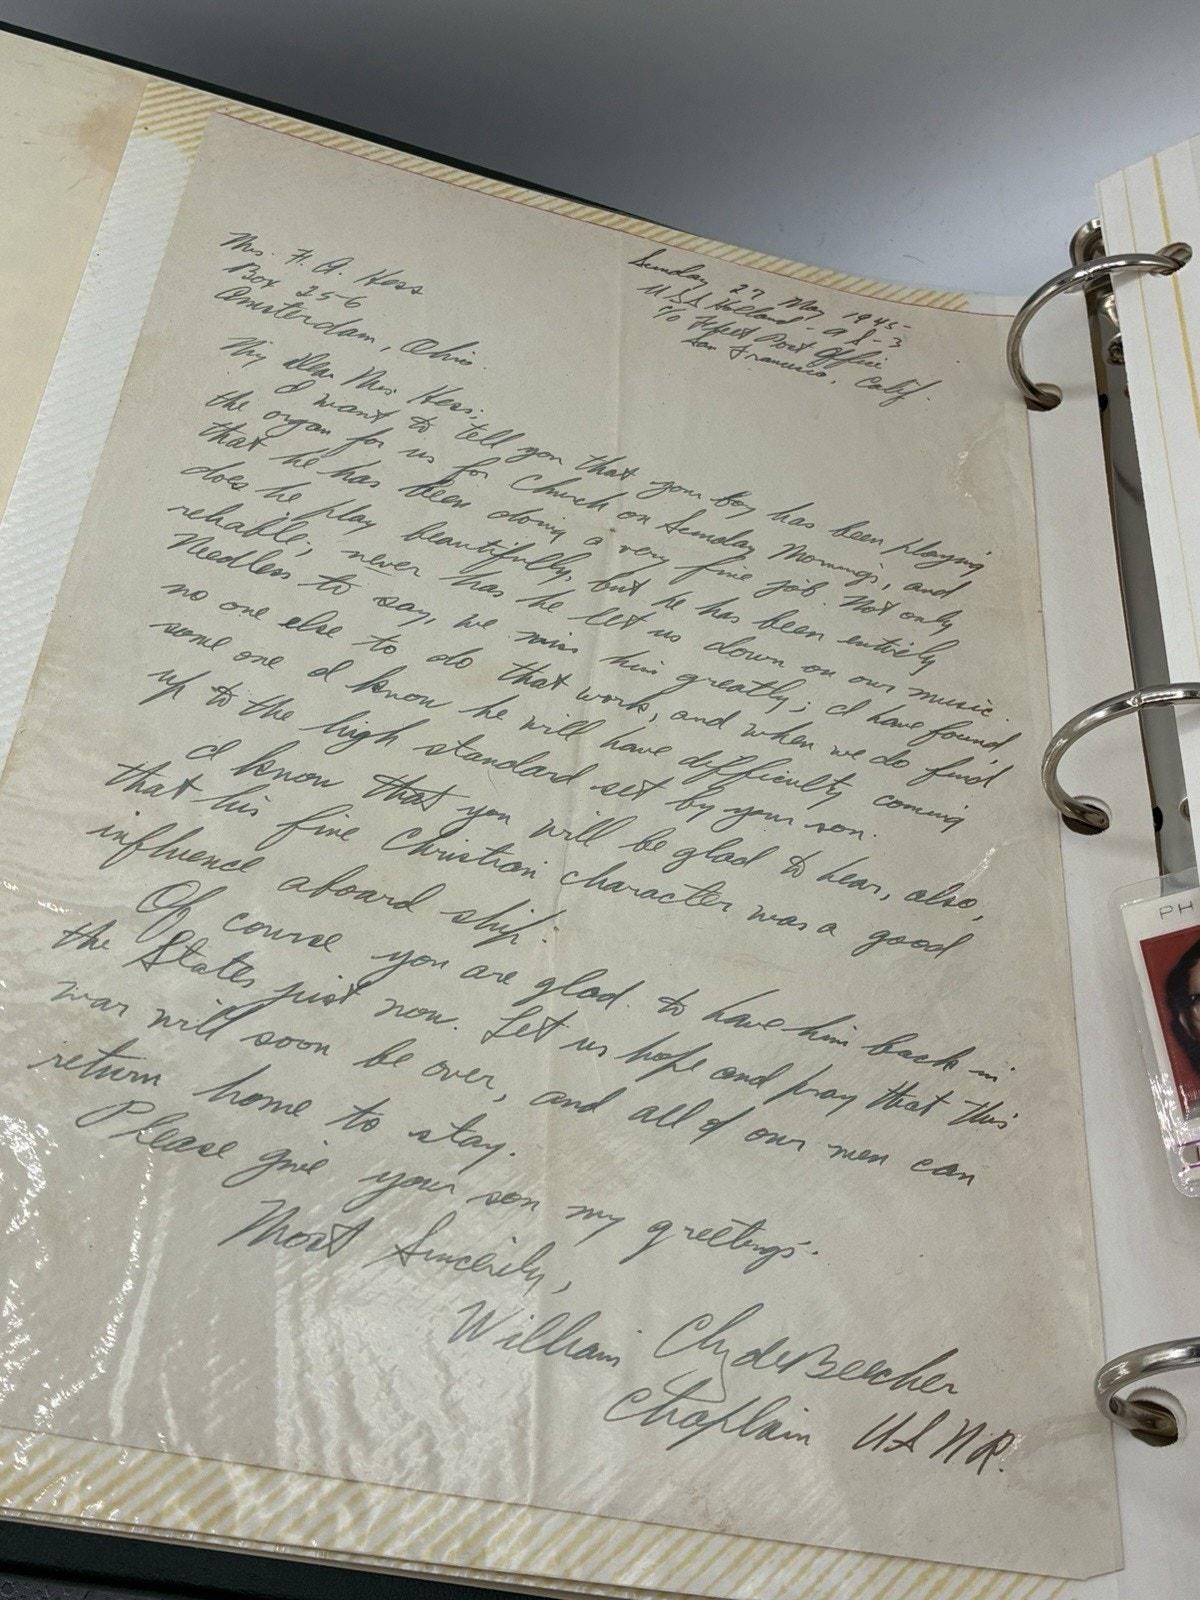 Sunday 27 May 1945
U.S.S. Holland - A S-3
c/o Fleet Post Office
San Francisco, Calif.
Mrs. F. A. Hess
Box 256
Amsterdam, Ohio.
My dear Mrs. Hess;
I want to tell you that your boy has been playing
the organ for us for Church on Sunday Mornings, and
that he has been doing a very fine job. Not only
does he play beautifully, but he has been entirely
reliable; never has he let us down on our music.
Needless to say, we miss him greatly; I have found
no one else to do that work, and when we do find
some one I know he will have difficulty coming
up to the high standard set by your son.
I know that you will be glad to hear, also,
that his fine Christian character was a good
influence aboard ship.
Of course you are glad to have him back in
the States just now. Let us hope and pray that this
war will soon be over, and all of our men can
return home to stay.
Please give your son my greetings.
Most Sincerely,
William Clyde Beecher
Chaplain USNR.
PH